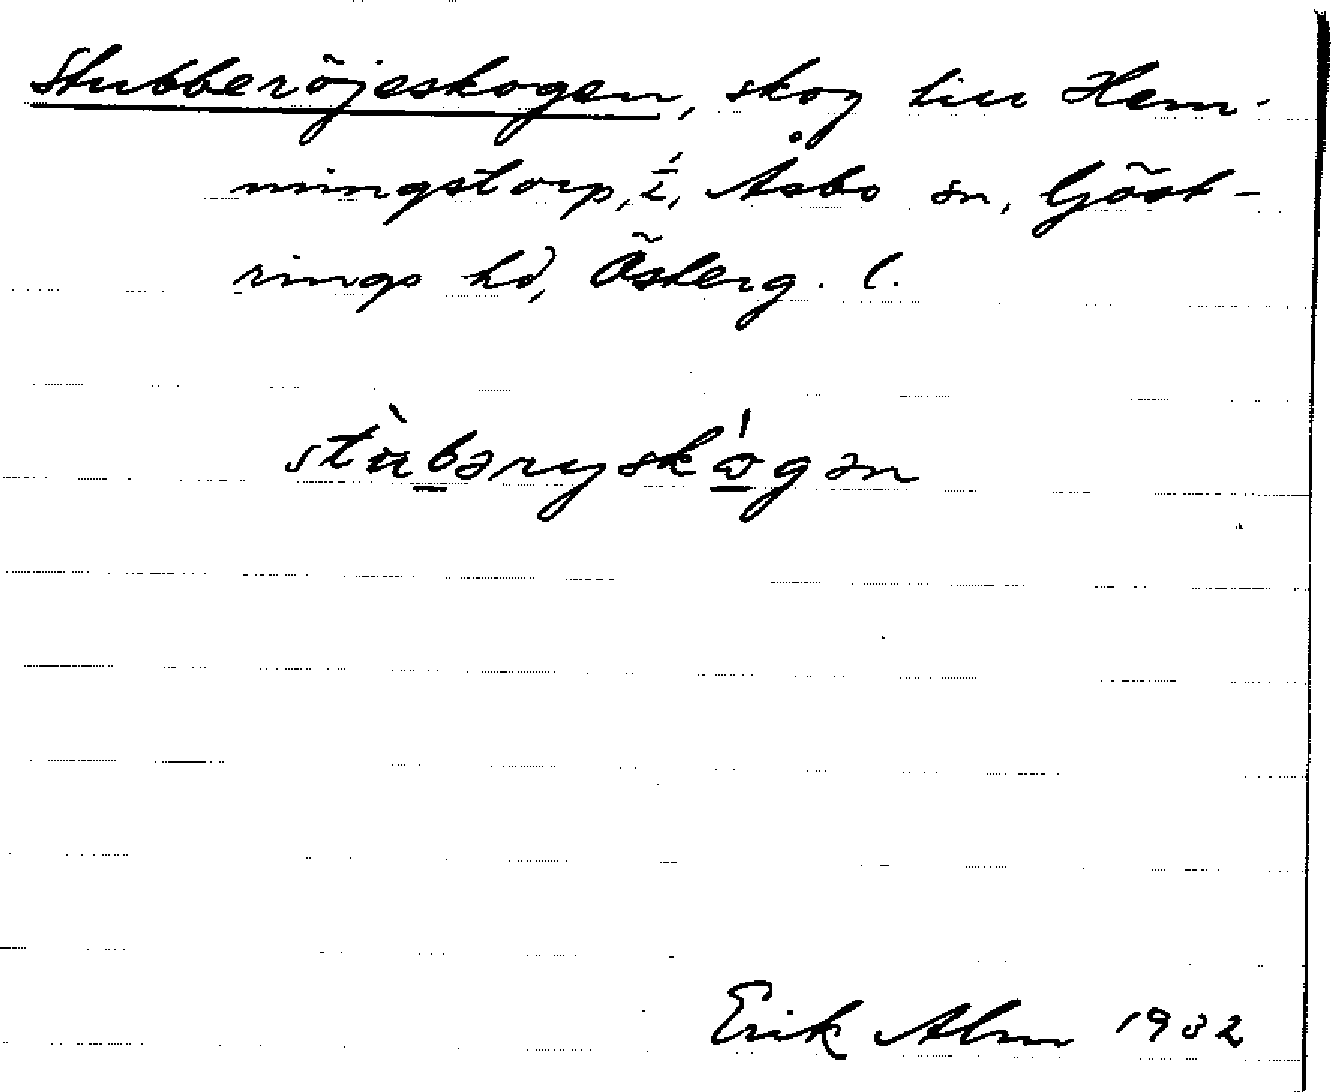 Stubberöjeskogen, skog till Hem-
ningstorp, i, Åsbo sn, Göst-
rings hd, Österg. l.
stu̇̀bəryskɷ́gən
Erik Alm 1932